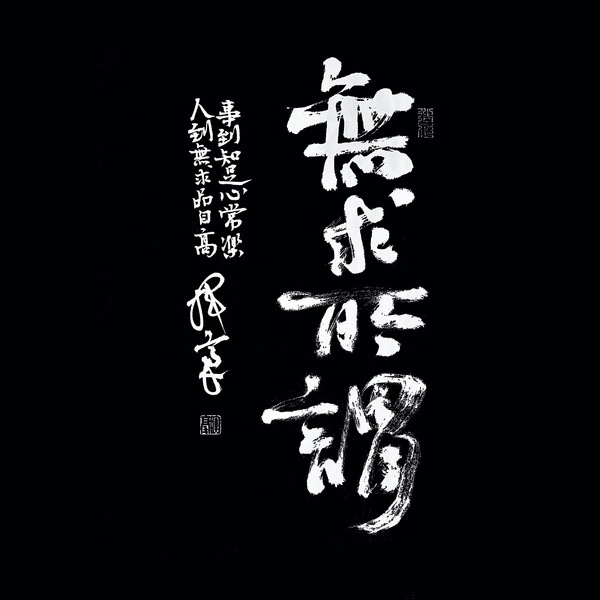 無求所謂
事到知足心常樂
人到無求品自高